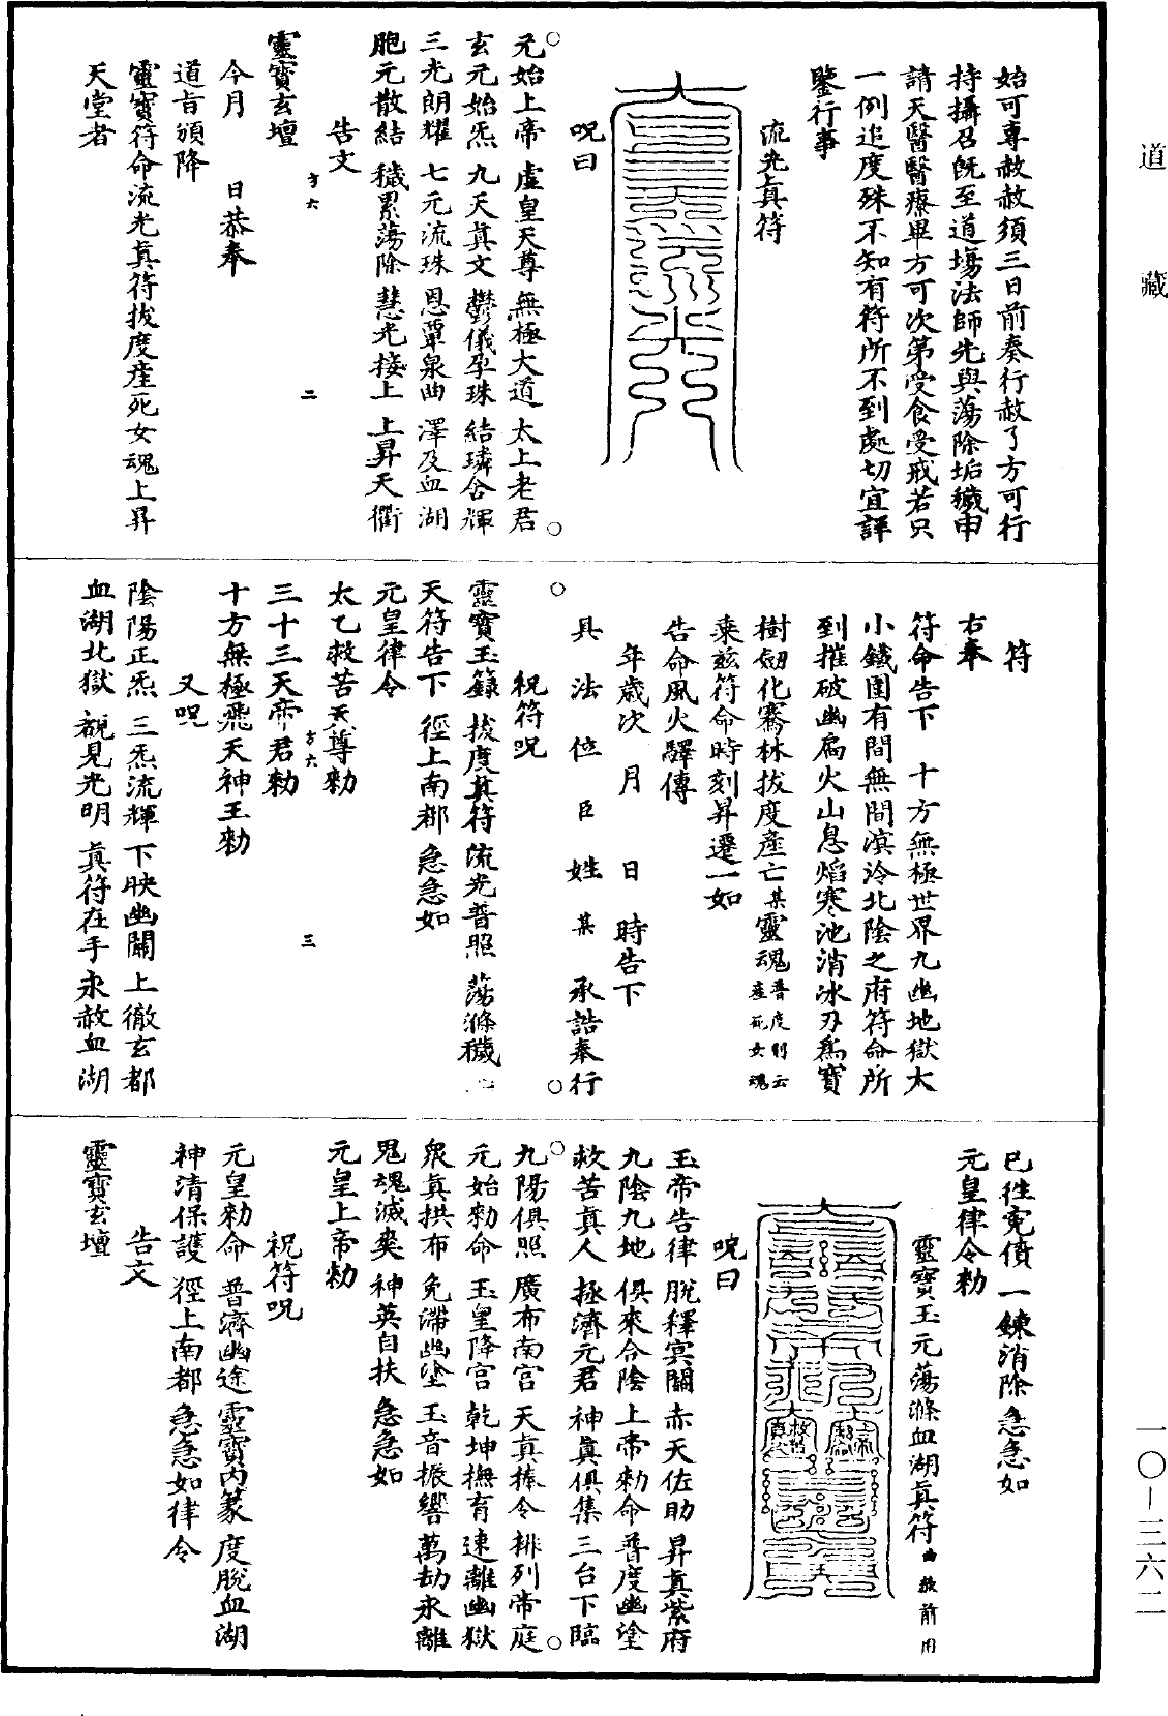 道藏
始可專赦赦須三日前奏行赦了方可行
持攝召旣至道場法師先與蕩除垢穢申
請天醫醫療畢方可次第受食受戒若只
一例追度殊不知有符所不到處切宜詳
鑒行事
流光上真符
呪曰
元始上帝 虛皇天尊 無極大道 太上老君
玄元始炁 九天真文 鬱儀孕珠 結璘含輝
三光朗耀 七元流珠 恩覃泉曲 澤及血湖
胞元散結 穢累蕩除 慧光接上 上昇天衢
告文
靈寶玄壇
今月 日恭奉
道旨頒降
靈寶符命流光真符拔度産死女魂上昇
天堂者
符
右奉
符命告下 十方無極世界九幽地獄太
小鐵圍有間無間溟泠北陰之府符命所
到摧破幽扃火山息焰寒池消冰刃爲寶
樹劒化騫林拔度産亡某靈魂普度則云産死女魂
乘茲符命時刻昇遷一如
告命風火驛傳
年歲次 月 日 時告下
具法位臣姓某 承誥奉行
祝符呪
靈寶玉籙 拔度真符 流光普照 蕩滌穢
天符告下 徑上南都 急急如
元皇律令
太乙救苦天尊勑
三十三天帝君勑
十方無極飛天神王勑
又呪
陰陽正炁 三炁流輝 下映幽關 上徹玄都
血湖北獄 覩見光明 真符在手 永赦血湖
已徃寃債 一鍊消除 急急如
元皇律令勑
靈寶玉元蕩滌血湖真符 救前用
呪曰
玉帝告律 脫釋冥關 赤天佐助 昇真紫府
九陰九地 俱來合陰 上帝勑命 普度幽塗
救苦真人 拯濟元君 神真俱集 三台下臨
九陽俱照 廣布南宮 天真捧令 排列帝庭
元始勑命 玉皇降宮 乾坤撫育 速離幽獄
衆真拱布 免滯幽塗 玉音振響 萬劫永離
鬼魂滅奭 神英自扶 急急如
元皇上帝勑
祝符呪
元皇勑命 普濟幽途 靈寶內篆 度脫血湖
神清保護 徑上南都 急急如律令
告文
靈寶玄壇
一〇—三六二